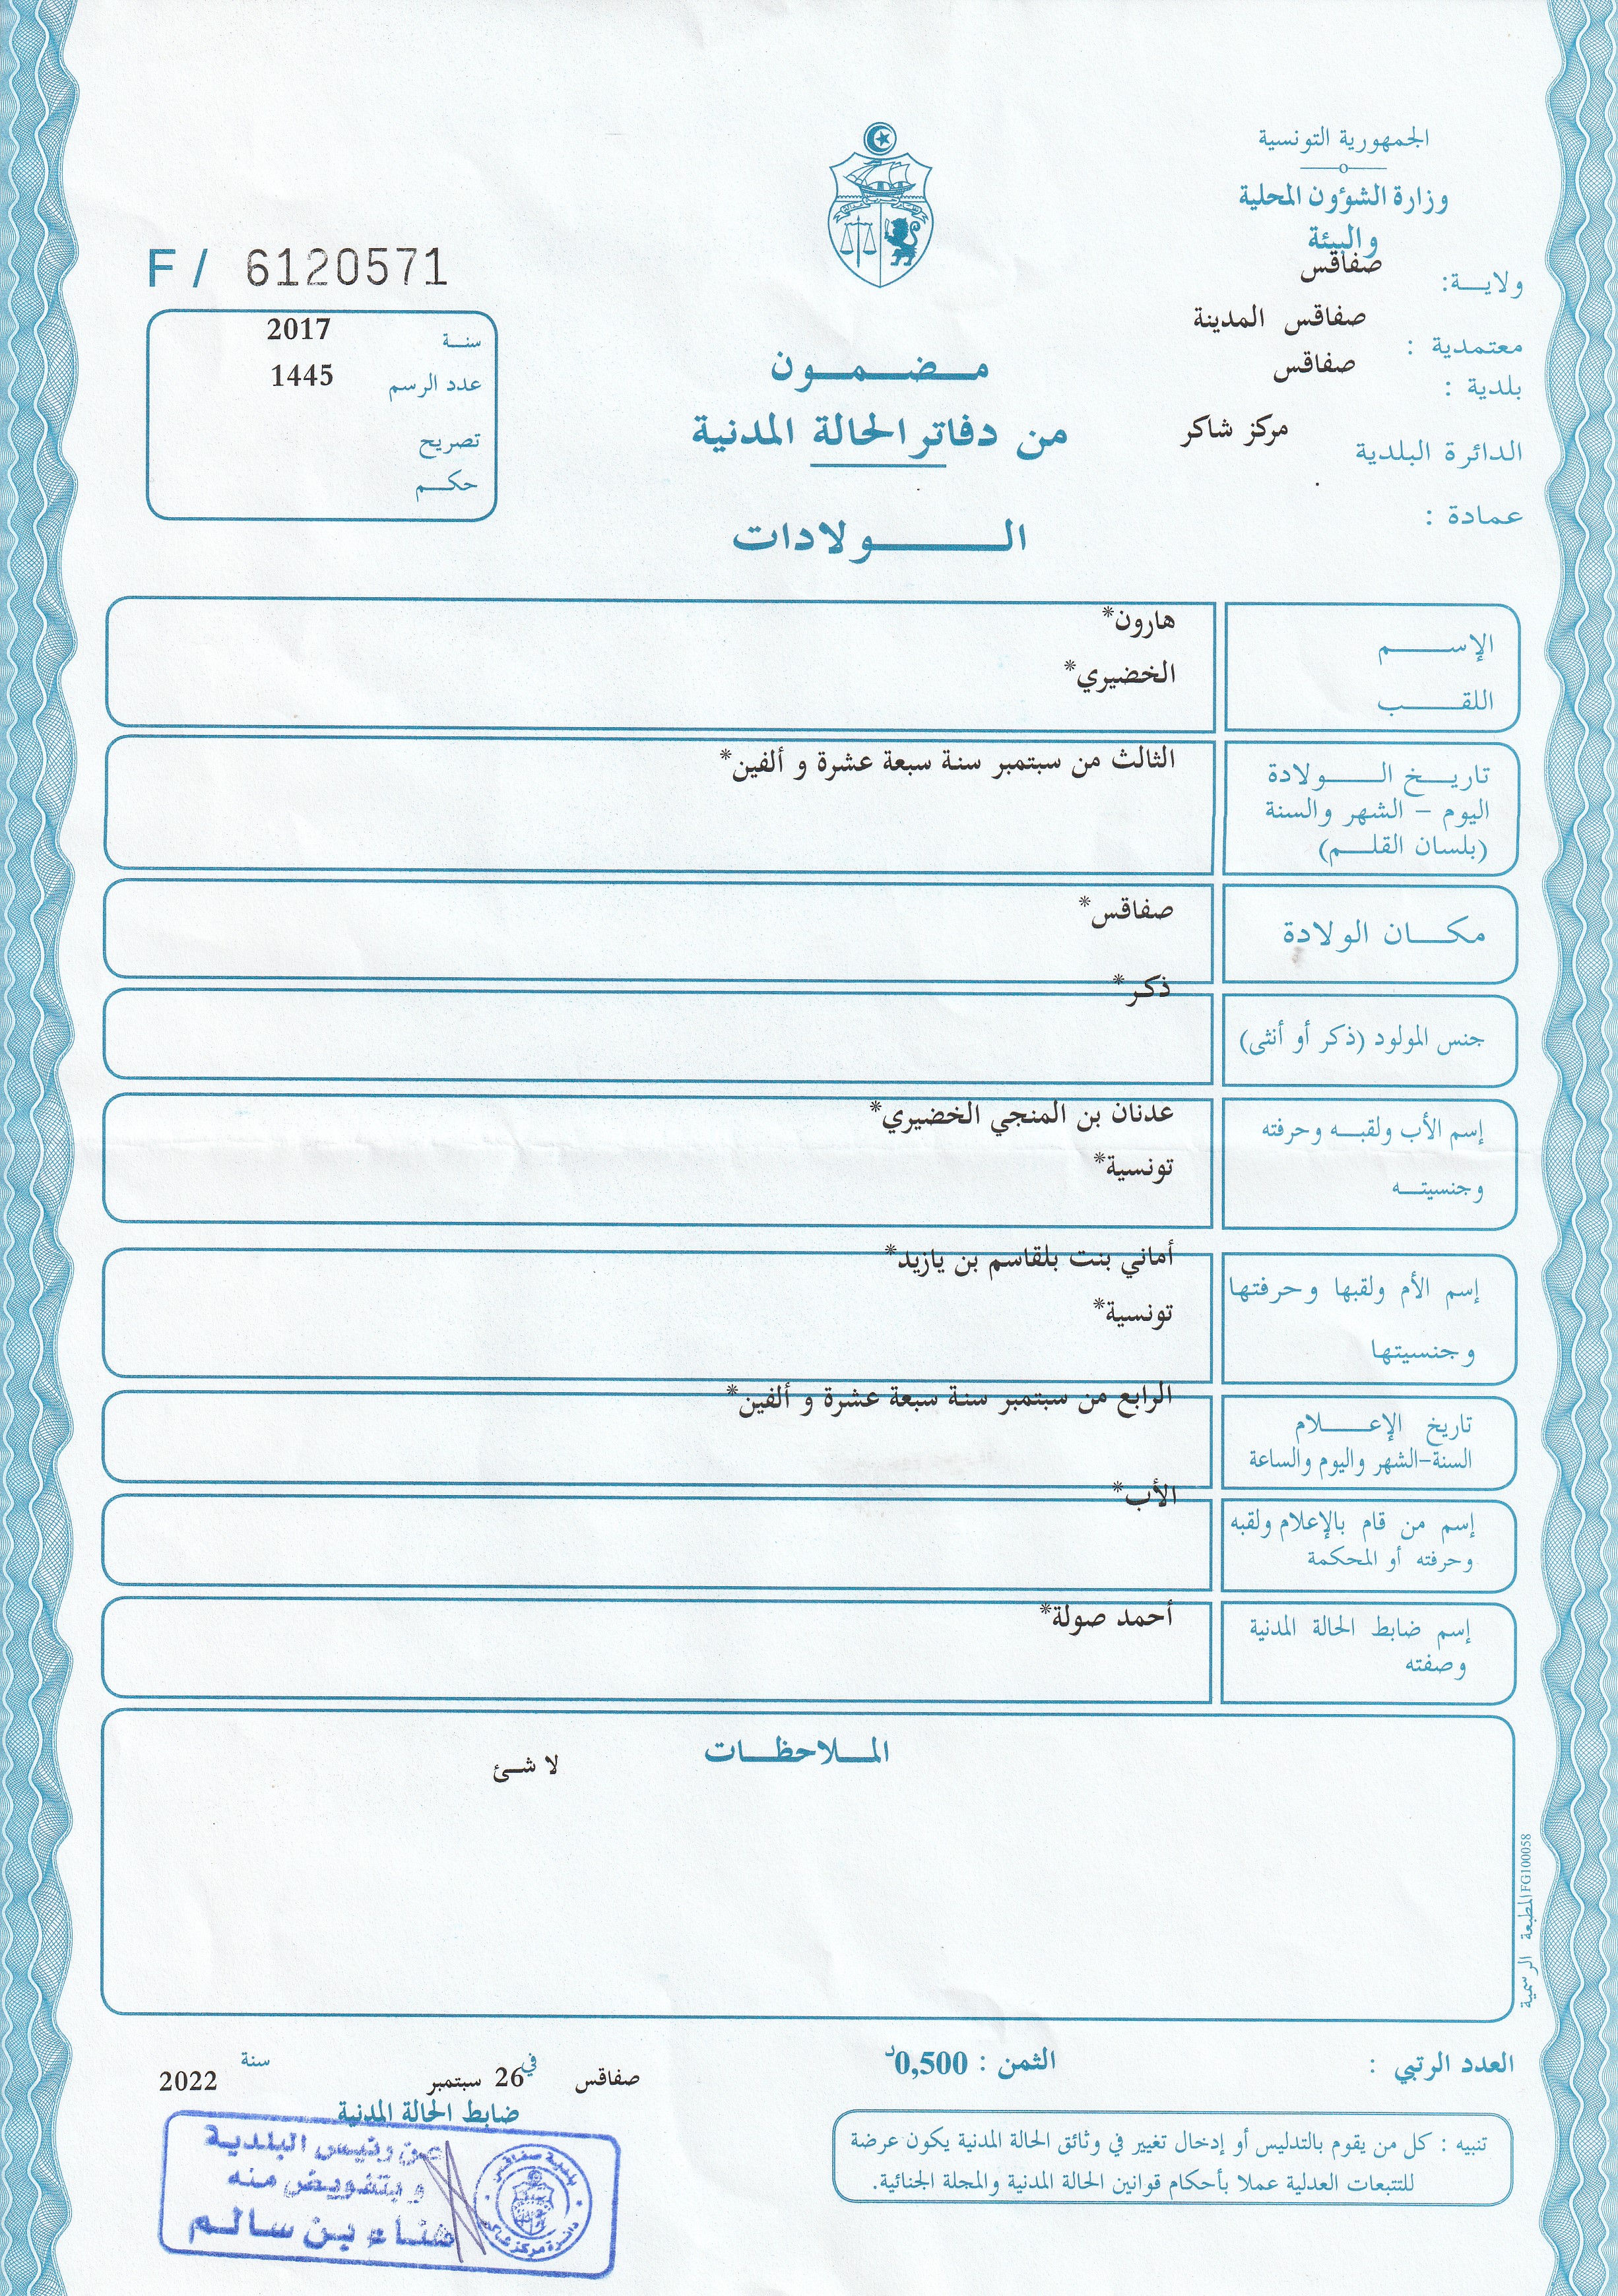 الجمهورية التونسية
وزارة الشؤون المحلية
والبيئة
ولاية: صفاقس
معتمدية : صفاقس المدينة
بلدية : صفاقس
الدائرة البلدية مركز شاكر
عمادة :
مضمون
من دفاتر الحالة المدنية
الولادات
F / 6120571
سنة 2017
عدد الرسم 1445
تصريح
حكم
الإسم هارون*
اللقب الخضيري*
تاريخ الولادة
اليوم - الشهر والسنة
(بلسان القلم)
الثالث من سبتمبر سنة سبعة عشرة و ألفين*
مكان الولادة صفاقس*
جنس المولود (ذكر أو أنثى) ذكر*
إسم الأب ولقبه وحرفته
وجنسيته
عدنان بن المنجي الخضيري*
تونسية*
إسم الأم ولقبها وحرفتها
وجنسيتها
أماني بنت بلقاسم بن يازيد*
تونسية*
تاريخ الإعلام
السنة-الشهر واليوم والساعة
الرابع من سبتمبر سنة سبعة عشرة و ألفين*
إسم من قام بالإعلام ولقبه
وحرفته أو المحكمة
الأب*
إسم ضابط الحالة المدنية
وصفته
أحمد صولة*
الملاحظات
لا شئ
المطبعة الرسمية FG100058
العدد الرتبي :
الثمن : 0,500د
صفاقس في 26 سبتمبر سنة 2022
ضابط الحالة المدنية
عن رئيس البلدية
وبتفويض منه
هناء بن سالم
بلدية صفاقس
دائرة مركز شاكر
تنبيه : كل من يقوم بالتدليس أو إدخال تغيير في وثائق الحالة المدنية يكون عرضة
للتتبعات العدلية عملا بأحكام قوانين الحالة المدنية والمجلة الجنائية.